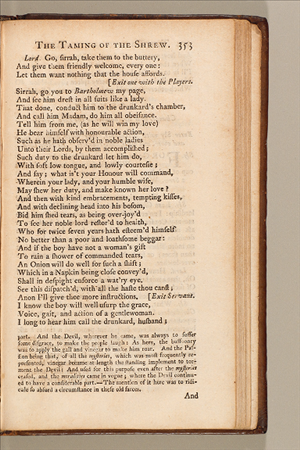 The Taming of the Shrew. 353
Lord. Go, sirrah, take them to the buttery,
And give them friendly welcome, every one:
Let them want nothing that the house affords.
[Exit one with the Players.
Sirrah, go you to Bartholomew my page,
And see him drest in all suits like a lady.
That done, conduct him to the drunkard's chamber,
And call him Madam, do him all obeisance.
Tell him from me, (as he will win my love)
He bear himself with honourable action,
Such as he hath observ'd in noble ladies
Unto their Lords, by them accomplished;
Such duty to the drunkard let him do,
With soft low tongue, and lowly courtesie;
And say; what is't your Honour will command,
Wherein your lady, and your humble wife,
May shew her duty, and make known her love?
And then with kind embracements, tempting kisses,
And with declining head into his bosom,
Bid him shed tears, as being over-joy'd
To see her noble lord restor'd to health,
Who for twice seven years hath esteem'd himself
No better than a poor and loathsome beggar:
And if the boy have not a woman's gift
To rain a shower of commanded tears,
An Onion will do well for such a shift;
Which in a Napkin being close convey'd,
Shall in despight enforce a wat'ry eye.
See this dispatch'd, with all the haste thou canst;
Anon I'll give thee more instructions. [Exit Servant.
I know the boy will well usurp the grace,
Voice, gait, and action of a gentlewoman.
I long to hear him call the drunkard, husband;
part. And the Devil, wherever he came, was always to suffer
some disgrace, to make the people laugh: As here, the buffoonry
was to apply the gall and vinegar to make him roar. And the Pas-
sion being that, of all the mysteries, which was most frequently re-
presented, vinegar became at length the standing implement to tor-
ment the Devil: And used for this purpose even after the mysteries
ceased, and the moralities came in vogue; where the Devil continu-
ed to have a considerable part.—The mention of it here was to ridi-
cule so absurd a circumstance in these old farces.
And